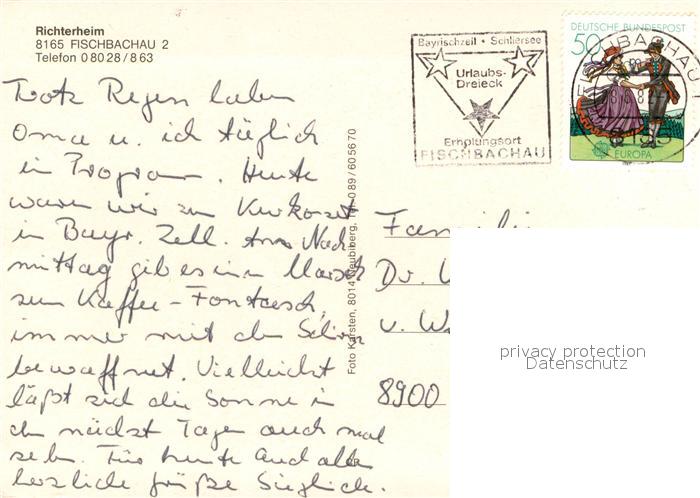 Richterheim
8165 FISCHBACHAU 2
Telefon 0 80 28 / 8 63
Bayrischzell · Schliersee
Urlaubs-
Dreieck
Erholungsort
FISCHBACHAU
DEUTSCHE BUNDESPOST
50
EUROPA
FISCHBACHAU
8165
Trotz Regen haben
Oma u. ich täglich
ein Program. Heute
waren wir zum Kurkonzert
in Bayr. Zell. Am Nach
mittag gib es einen Marsch
zum Kaffee-
immer mit dem Schirm
bewaffnet. Vielleicht
läßt sich die Sonne in
den nächst Tagen auch mal
sehn. Für heute Euch allen
herzliche Grüße Sieglinde.
Foto Karsten, 8014 Neubiberg, Tel. 0 89 / 60 56 70
Familie
Dr.
v. W
8900
privacy protection
Datenschutz